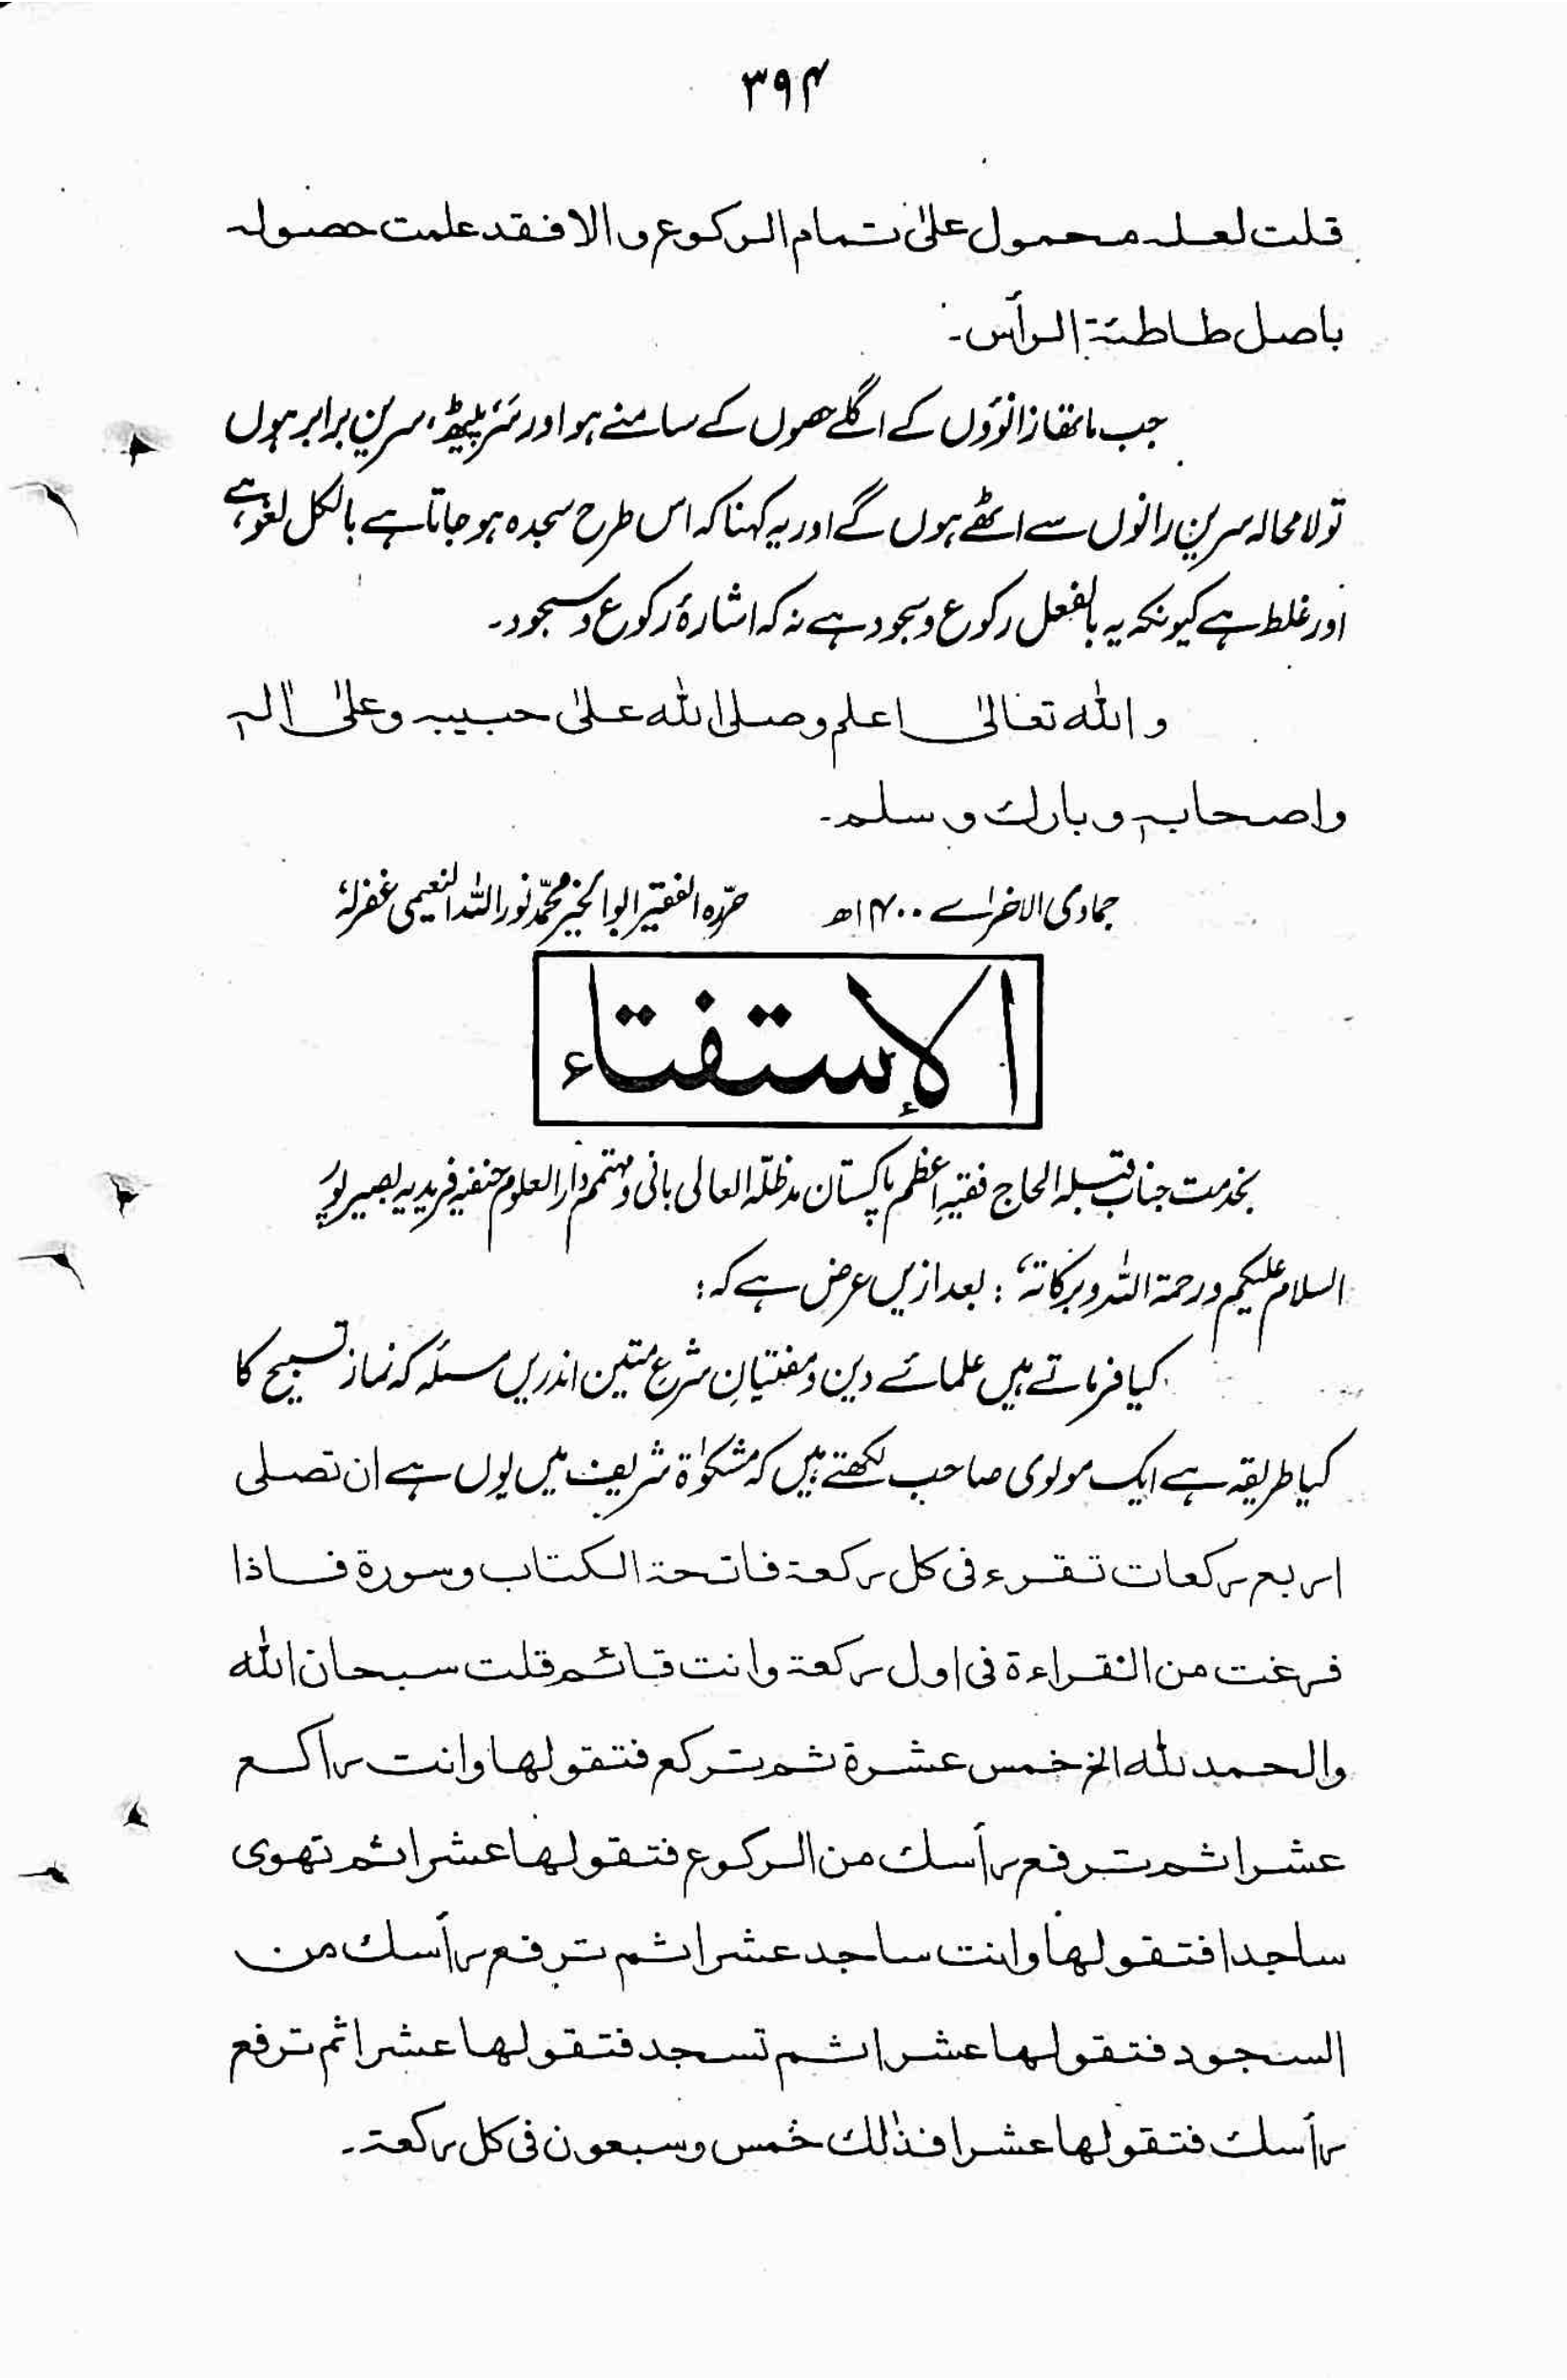 ۳۹۴
قلت لعلہ محمول علیٰ تمام الرکوع والا فقد علمت حصولہ
باصل طاطئۃ الرأس۔
جب ماتھا زانوؤں کے اگلے حصوں کے سامنے ہو اور سَر، پیٹھ، سرین برابر ہوں
تو لا محالہ سرین رانوں سے اٹھے ہوں گے اور یہ کہنا کہ اس طرح سجدہ ہو جاتا ہے بالکل لغو ہے،
اور غلط ہے کیونکہ یہ بالفعل رکوع و سجود ہے نہ کہ اشارۂ رکوع و سجود۔
واللہ تعالیٰ اعلم وصلی اللہ علیٰ حبیبہ وعلیٰ اٰلہٖ
واصحابہٖ وبارک وسلم۔
جمادی الاخرٰے ۱۴۰۰ھ حرّرہ الفقیر ابوالخیر محمّد نور اللہ النعیمی غفرلہٗ
الإستفتاء
بخدمت جناب قبلہ الحاج فقیہِ اعظم پاکستان مدظلّہ العالی بانی و مہتمم دار العلوم حنفیہ فریدیہ بصیر پور
السلام علیکم ورحمۃ اللہ وبرکاتہٗ : بعد ازیں عرض ہے کہ:
کیا فرماتے ہیں علمائے دین و مفتیانِ شرع متین اندریں مسئلہ کہ نماز تسبیح کا
کیا طریقہ ہے ایک مولوی صاحب لکھتے ہیں کہ مشکوٰۃ شریف میں یوں ہے ان تصلی
اربع رکعات تقرء فی کل رکعۃ فاتحۃ الکتاب وسورۃ فاذا
فرغت من القراءۃ فی اول رکعۃ وانت قائم قلت سبحان اللہ
والحمد للہ الخ خمس عشرۃ ثم ترکع فتقولها وانت راکع
عشرا ثم ترفع رأسک من الرکوع فتقولها عشرا ثم تهوی
ساجدا فتقولها وانت ساجد عشرا ثم ترفع رأسک من
السجود فتقولها عشرا ثم تسجد فتقولها عشرا ثم ترفع
رأسک فتقولها عشرا فذٰلک خمس وسبعون فی کل رکعۃ۔